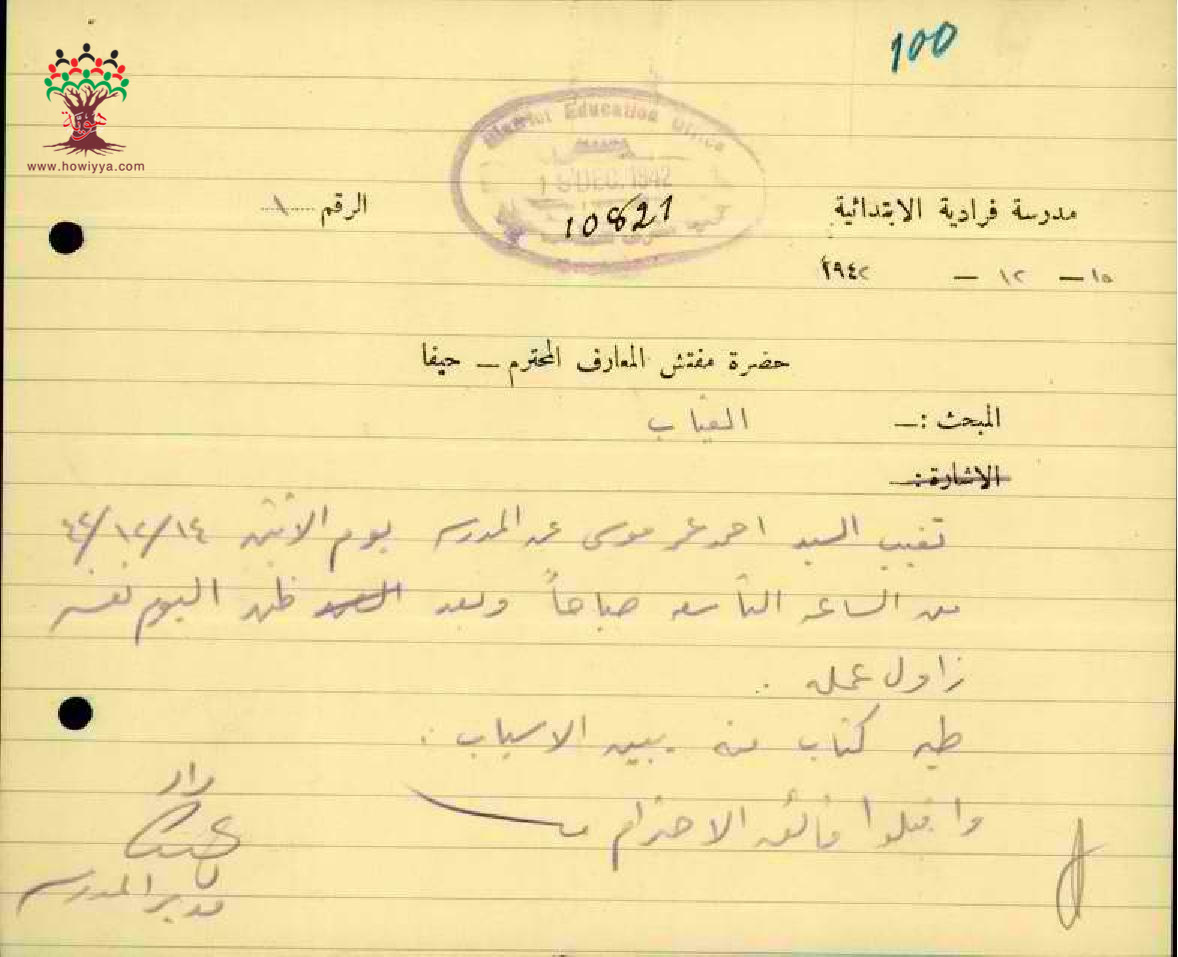 100
هوية
www.howiyya.com
District Education Office
15 DEC. 1942
10821
مدرسة فرادية الابتدائية
الرقم ١
١٥ – ١٢ – ١٩٤٢
حضرة مفتش المعارف المحترم – حيفا
المبحث :– الغياب
الاشارة :–
تغيب السيد احمد عمر موسى عن المدرسه يوم الاثنين ١٤/١٢/٤٢
من الساعه التاسعه صباحاً وبعد ظهر اليوم نفسه
زاول عمله .
طيه كتاب منه يبين الاسباب .
واقبلوا فائق الاحترام
مدير المدرسه